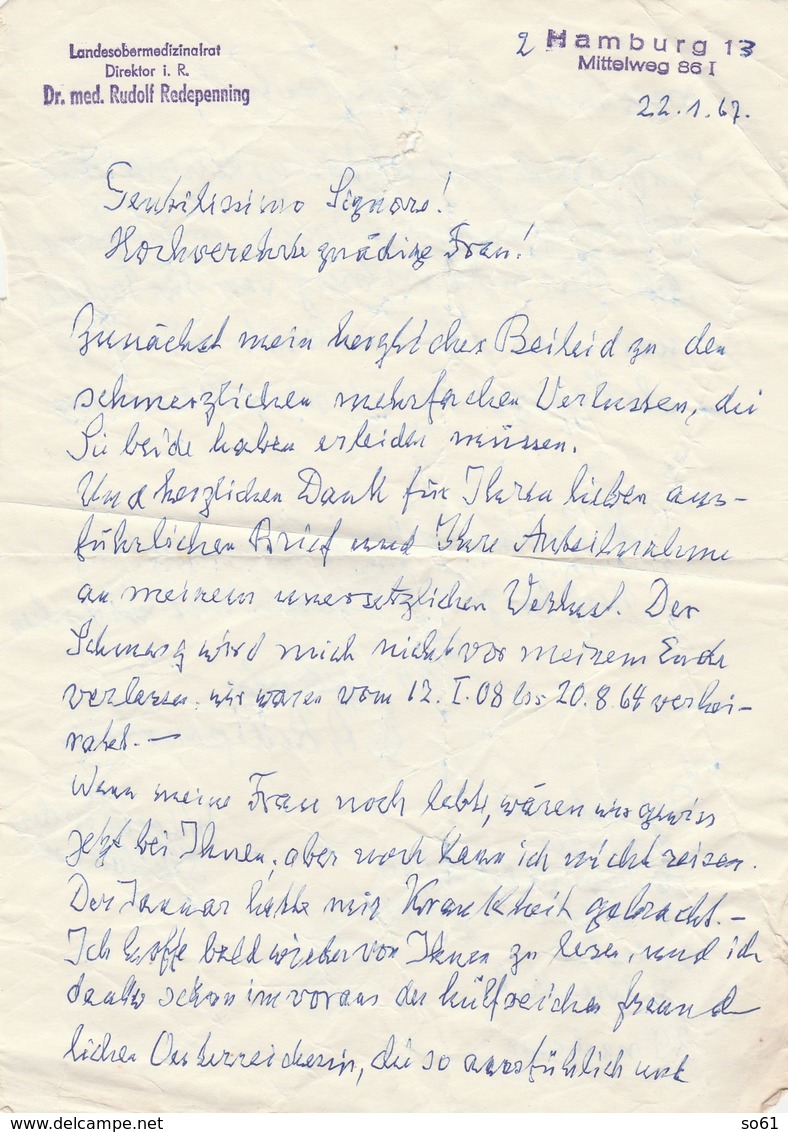 Landesobermedizinalrat
Direktor i. R.
Dr. med. Rudolf Redepenning
2 Hamburg 13
Mittelweg 86 I
22.1.67.
Gentilissimo Signore!
Hochverehrte gnädige Frau!
Zunächst mein herzliches Beileid zu den
schmerzlichen mehrfachen Verlusten, die
Sie beide haben erleiden müssen.
Und herzlichen Dank für Ihren lieben aus-
führlichen Brief und Ihre Anteilnahme
an meinem unersetzlichen Verlust. Der
Schmerz wird mich nicht vor meinem Ende
verlassen. wir waren vom 12. I. 08 bis 20.8.64 verhei-
ratet. —
Wenn meine Frau noch lebte, wären wir gewiss
jetzt bei Ihnen, aber noch kann ich nicht reisen.
Der Januar hatte mir Krankheit gebracht. —
Ich hoffe bald wieder von Ihnen zu lesen, und ich
danke schon im voraus der hülfreichen freund
lichen Oesterreicherin, die so ausführlich und
so61